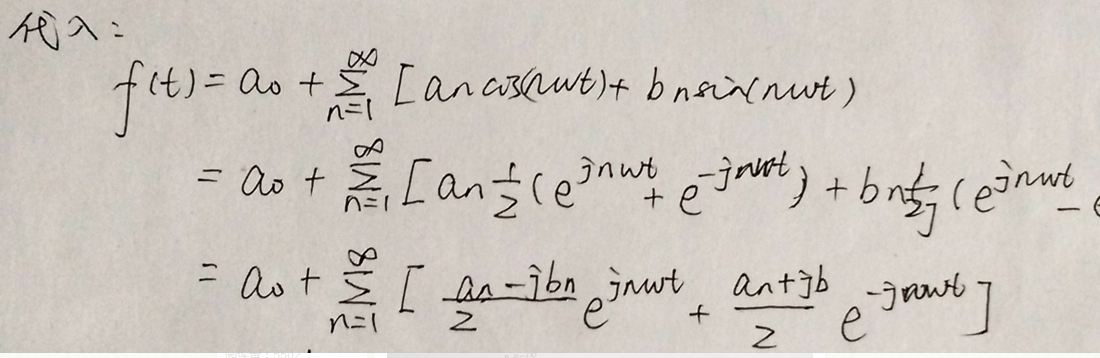 代入:
f(t) = a₀ + ∑_{n=1}^{∞} [ an cos(nwt) + bn sin(nwt)
= a₀ + ∑_{n=1}^{∞} [ an 1/2 (e^{jnwt} + e^{-jnwt}) + bn 1/2j (e^{jnwt} -
= a₀ + ∑_{n=1}^{∞} [ (an-jbn)/2 e^{jnwt} + (an+jb)/2 e^{-jnwt} ]